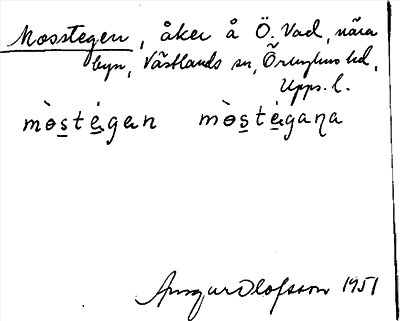 Mosstegen, åker å Ö. Vad, nära
byn, Västlands sn, Örbyhus hd,
Upps. l.
mòstégan mòstégaṇa
Ansgar Olofsson 1951